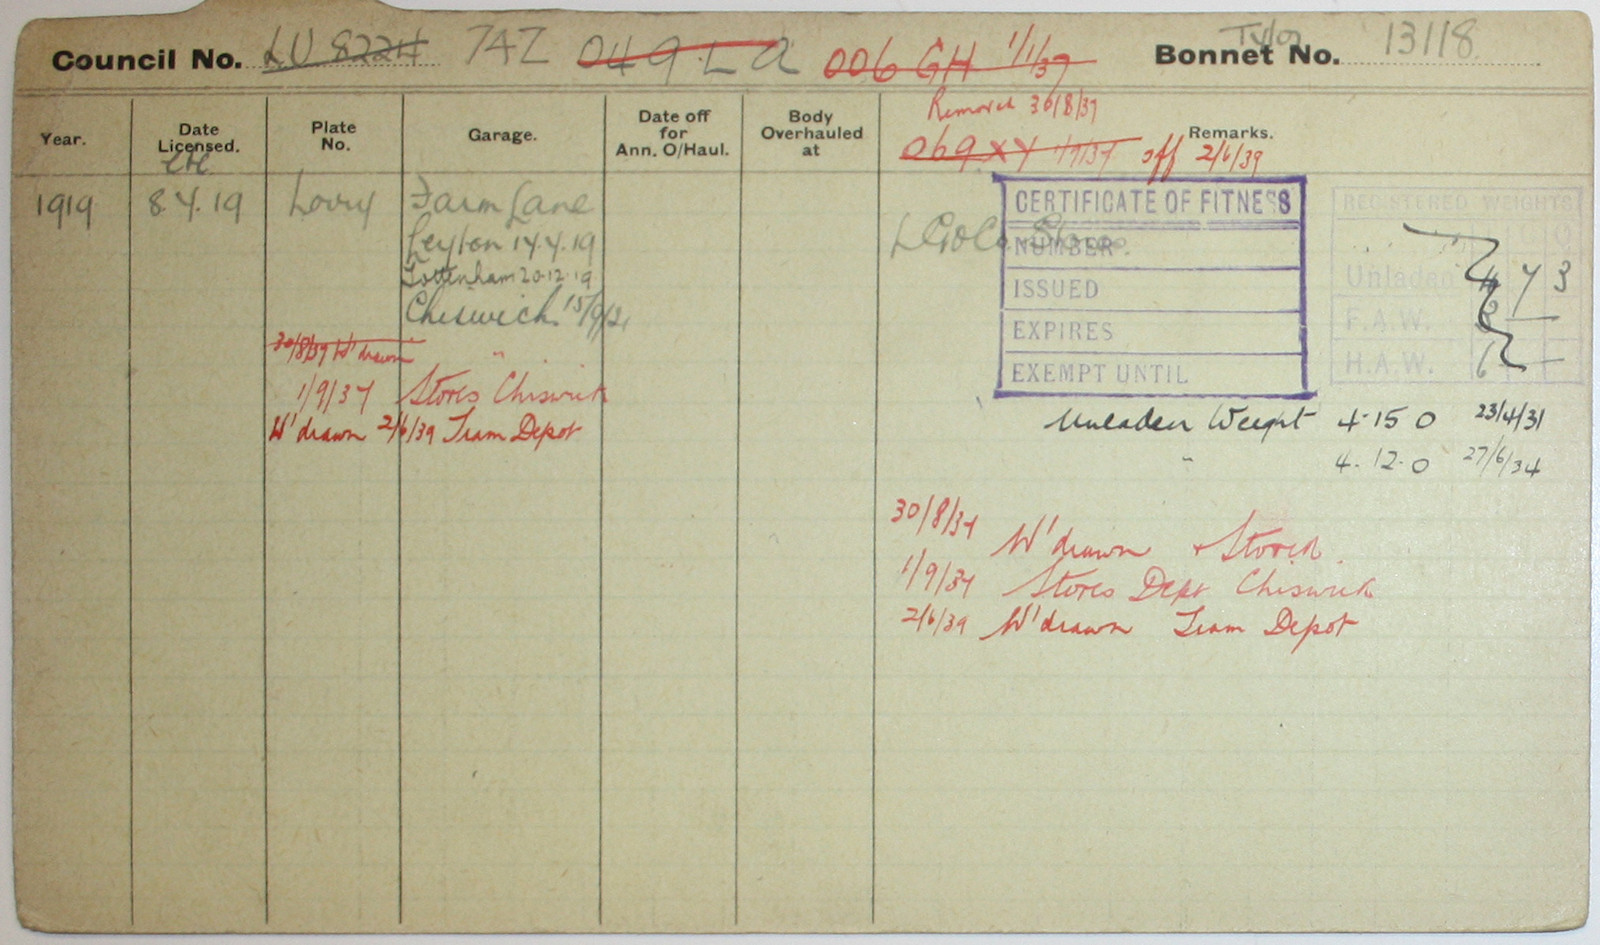 Council No. LU 8224 7AZ 049 LA 006 GH 1/1/37 Bonnet No. Tylor 13118
Removed 30/8/37
069 XY 1/9/37 off 2/6/39
Year. Date Licensed. Plate No. Garage. Date off for Ann. O/Haul. Body Overhauled at Remarks.
1919 8.4.19 Lorry Farm Lane
Leyton 14.4.19
Tottenham 20.12.19
Chiswick 15/9/21
30/8/37 W'drawn "
1/9/37 Stores Chiswick
W'drawn 2/6/39 Tram Depot
LGOCo. Stores
CERTIFICATE OF FITNESS
NUMBER
ISSUED
EXPIRES
EXEMPT UNTIL
REGISTERED WEIGHTS
Unladen 4 7 3
F.A.W.
H.A.W. 6 —
Unladen Weight 4.15 0 23/4/31
" 4.12.0 27/6/34
30/8/37 W'drawn & Stored.
1/9/37 Stores Dept Chiswick
2/6/39 W'drawn Tram Depot